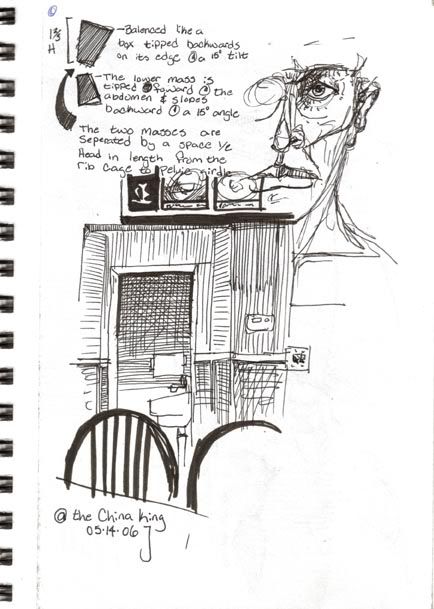 1⅔
H
-Balenced like a
box tipped backwards
on its edge @ a 15° tilt
-The lower mass is
tipped foward @ the
abdomen & slopes
backward @ a 15° angle
The two masses are
Seperated by a space ½
Head in length from the
rib cage to pelvic girdle
@ the China King
05·14·06